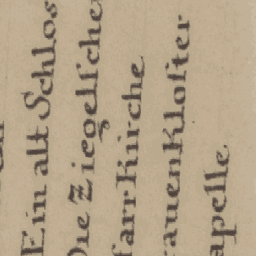 Ein alt Schlos
Die Ziegelsche
farrKirche
rauenKloster
apelle